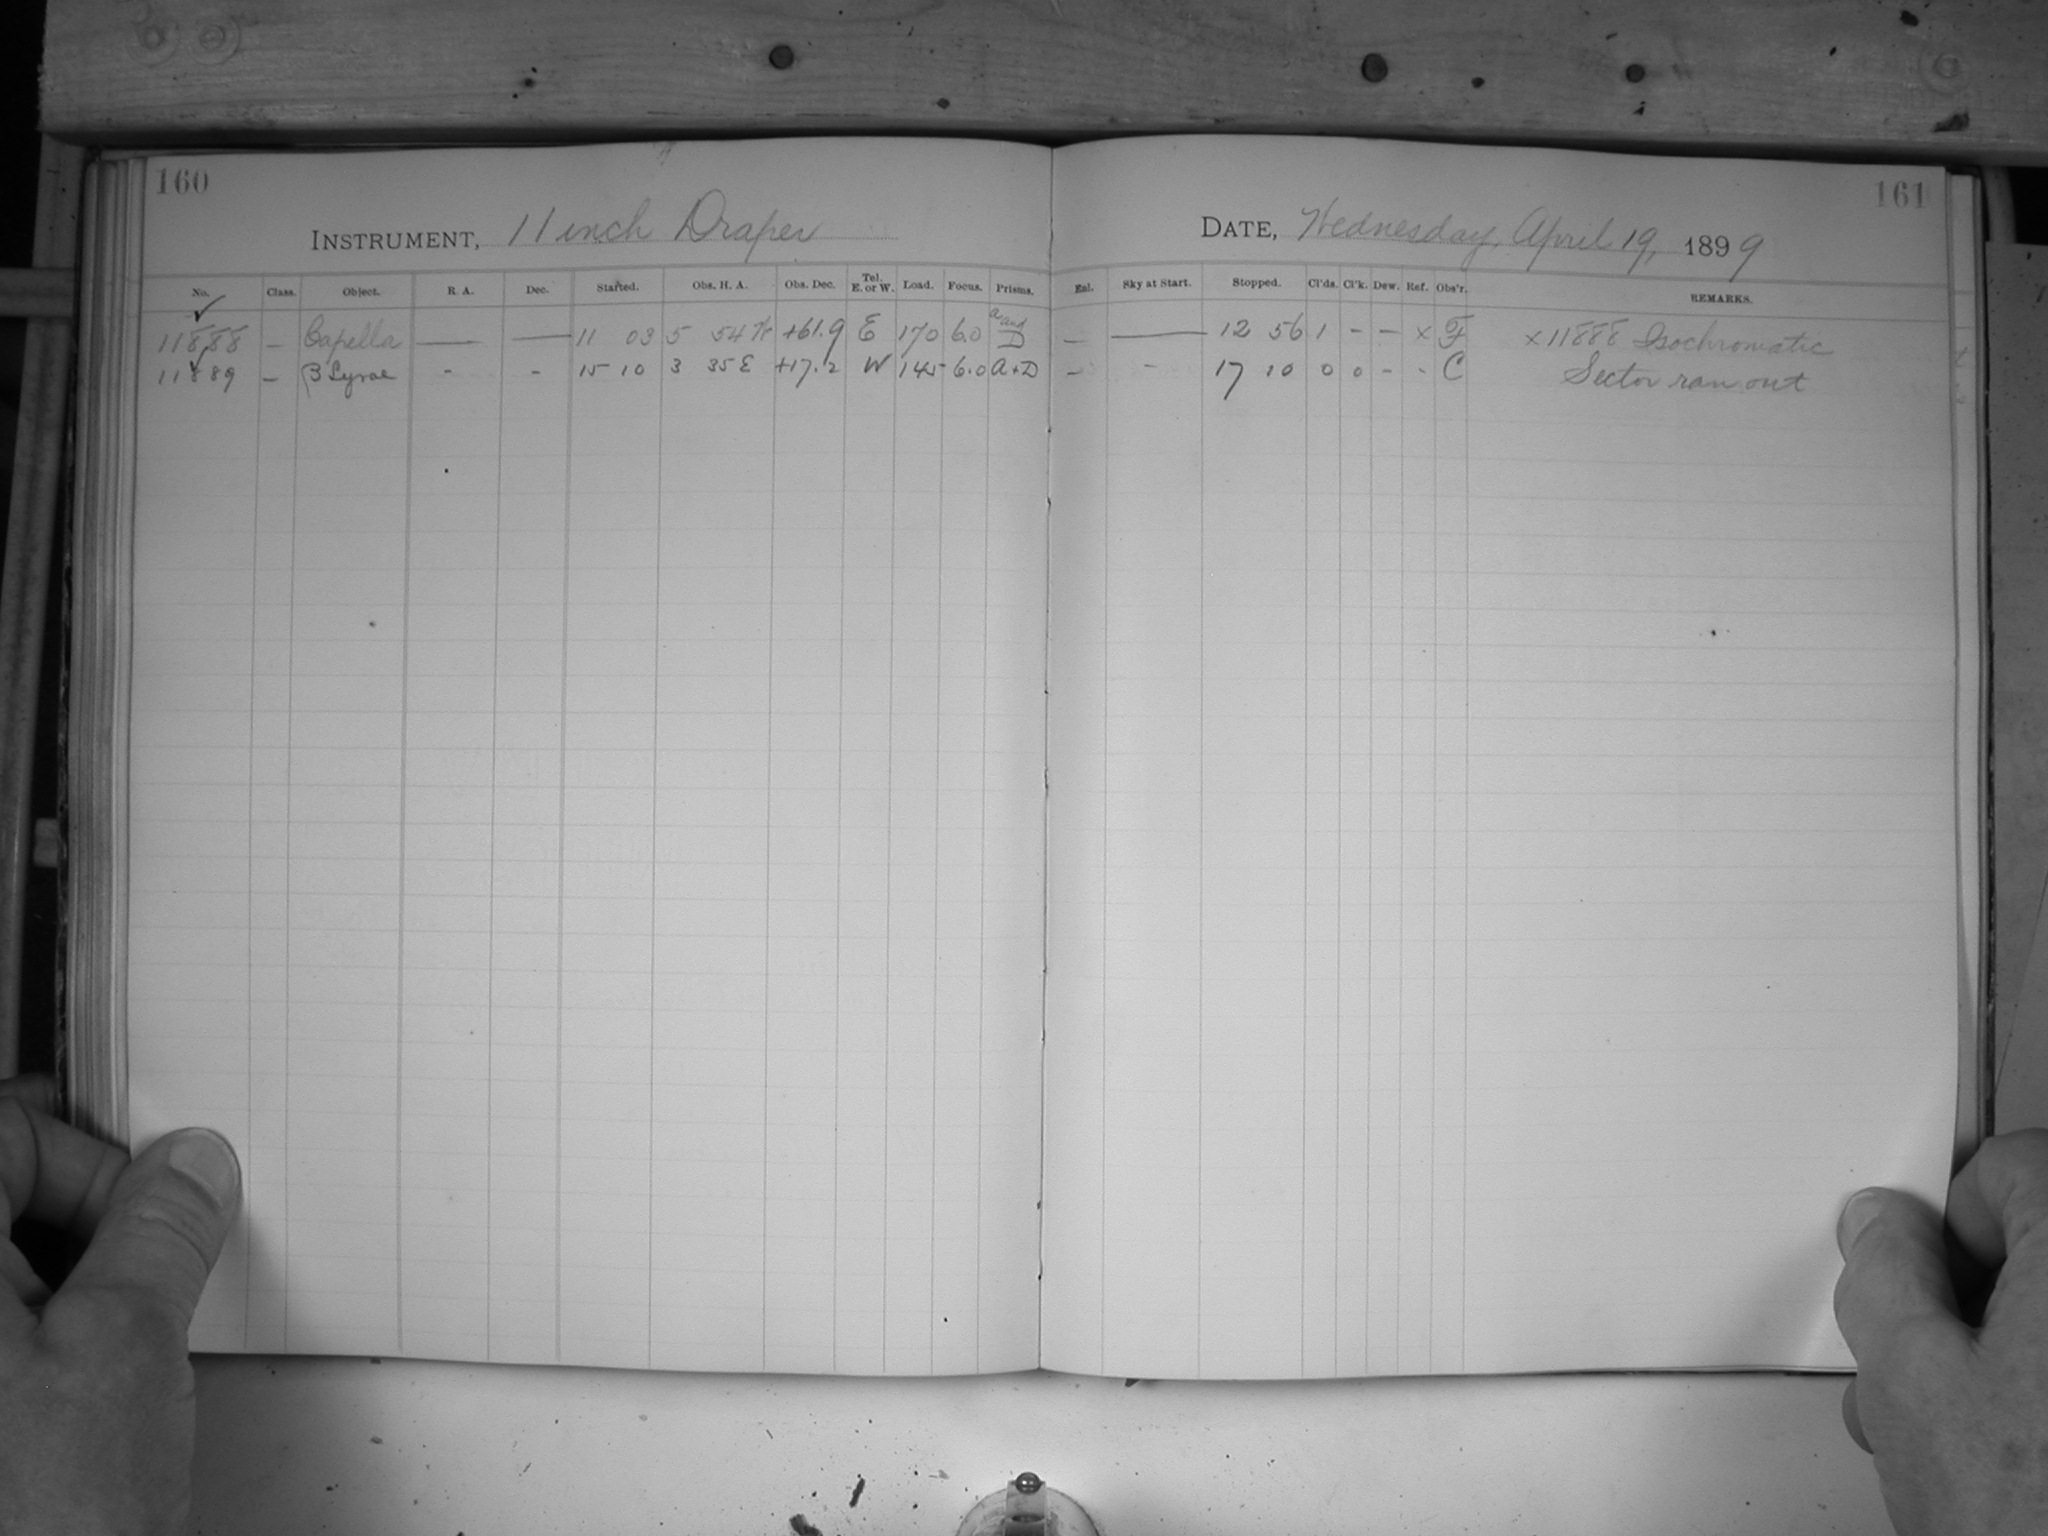 160
INSTRUMENT, 11 inch Draper
No. Class. Object. R. A. Dec. Started. Obs. H. A. Obs. Dec. Tel. E. or W. Load. Focus. Prisms.
11888 – Capella — — 11 03 5 54 W +61.9 E 170 6.0 a and D
11889 – β Lyrae - - 15 10 3 35 E +17.2 W 145 6.0 A+D
161
DATE, Wednesday, April 19, 1899
Enl. Sky at Start. Stopped. Cl'ds. Cl'k. Dew. Ref. Obs'r. REMARKS.
– — 12 56 1 – – x F x 11888 Isochromatic
– - 17 10 0 0 - - C Sector ran out